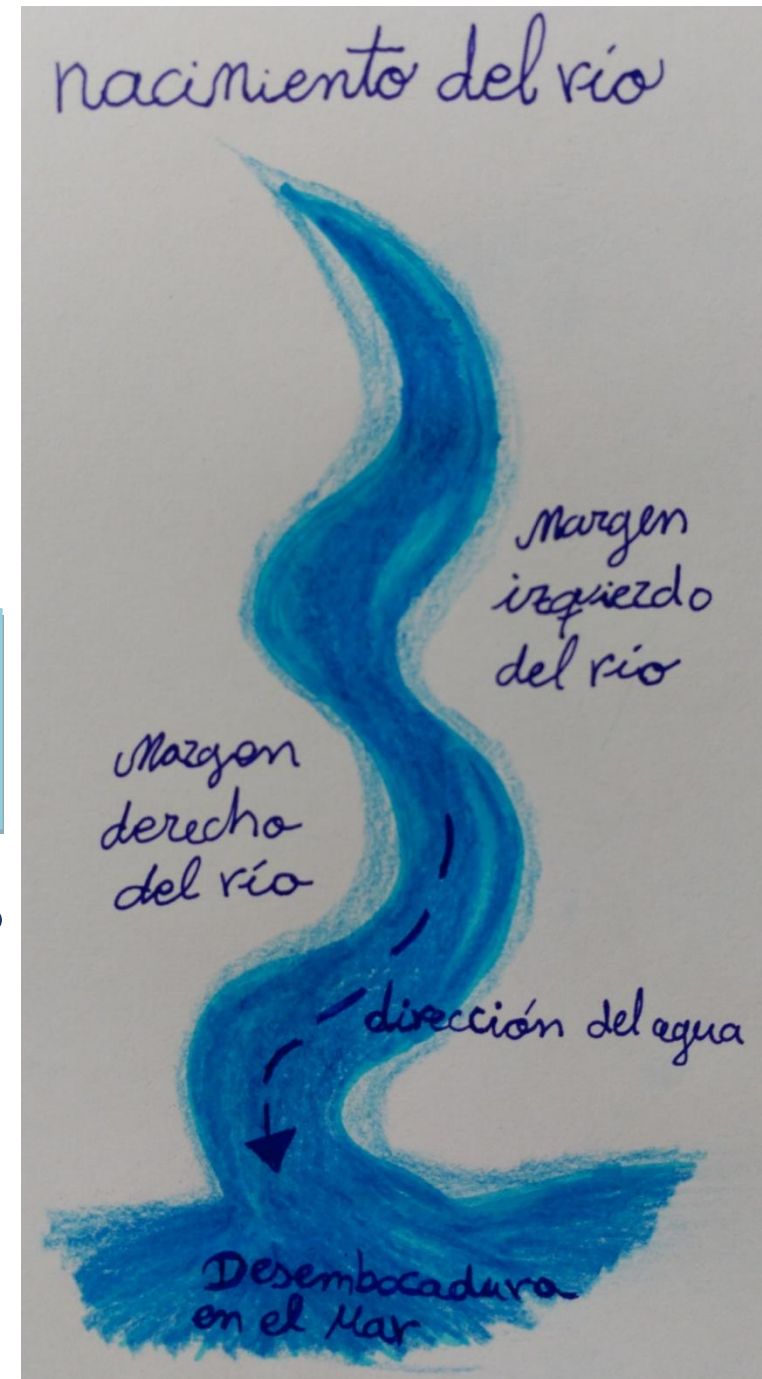 nacimiento del río
Margen
izquierdo
del río
Margen
derecho
del río
dirección del agua
Desembocadura
en el Mar